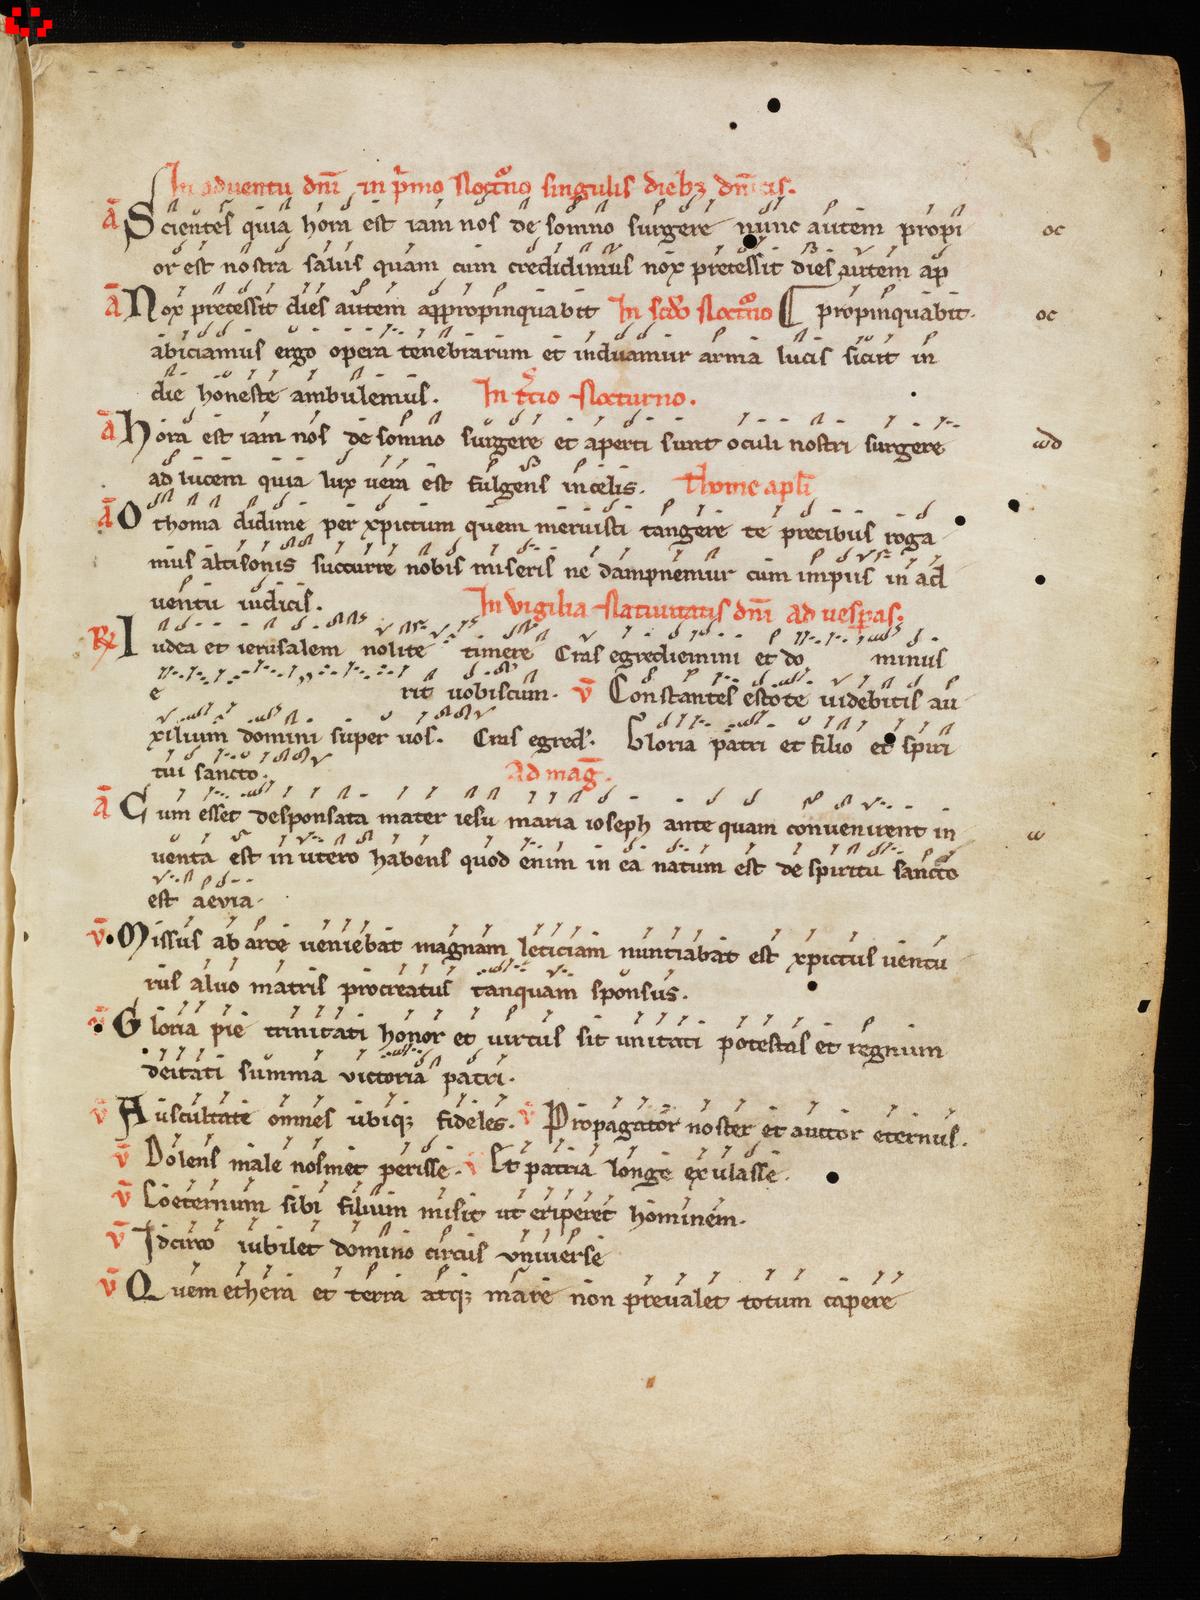 7
In aduentu dnī in p̄mo Nocturno singulis diebꝫ dn̄icis.
ā Scientes quia hora est iam nos de somno surgere nunc autem propi oc
or est nostra salus quam cum credidimus nox precessit dies autem ap
ā Nox precessit dies autem appropinquabit In scd̄o Nocturno propinquabit. oc
abiciamus ergo opera tenebrarum et induamur arma lucis sicut in
die honeste ambulemus. In t̄cio Nocturno.
ā Hora est iam nos de somno surgere et aperti sunt oculi nostri surgere ωd
ad lucem quia lux uera est fulgens in celis. Thome apl̄i
ā O thoma didime per xpictum quem meruisti tangere te precibus roga
mus altisonis succurre nobis miseris ne dampnemur cum impiis in ad
uentu iudicis. In Vigilia Natiuitatis dnī ad uesperas.
℟ Iudea et ierusalem nolite timere Cras egrediemini et do minus
e rit uobiscum. v̄ Constantes estote uidebitis au
xilium domini super uos. Cras egred'. Gloria patri et filio et spiri
tui sancto. Ad maḡ.
ā Cum esset desponsata mater iesu maria ioseph ante quam conuenirent in ω
uenta est in utero habens quod enim in ea natum est de spiritu sancto
est aeuia.
v̄ Missus ab arce ueniebat magnam leticiam nuntiabat est xpictus uentu
rus aluo matris procreatus tanquam sponsus.
Gloria pie trinitati honor et uirtus sit unitati potestas et regnum
deitati summa victoria patri.
v̄ Auscultate omnes ubiqꝫ fideles. v̄ Propagator noster et auctor eternus.
v̄ Dolens male nosmet perisse. v̄ Et patria longe exulasse.
v̄ Coeternum sibi filium misit ut eriperet hominem.
v̄ Idcirco iubilet domino circus vniuerse
v̄ Quem ethera et terra atqꝫ mare non preualet totum capere